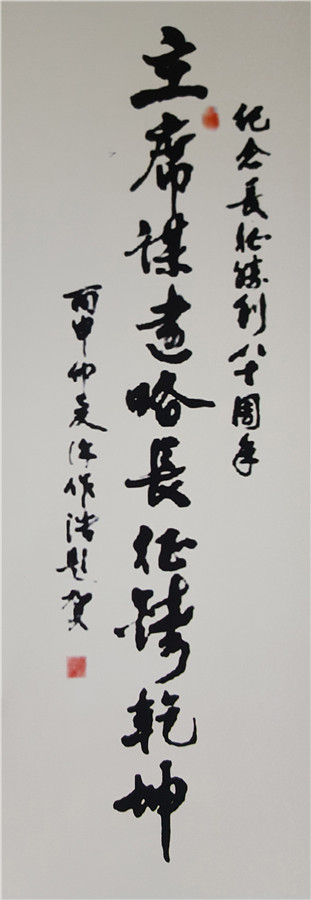 纪念長征勝利八十周年
主席謀遠略長征鑄乾坤
丙申仲夏作題賀